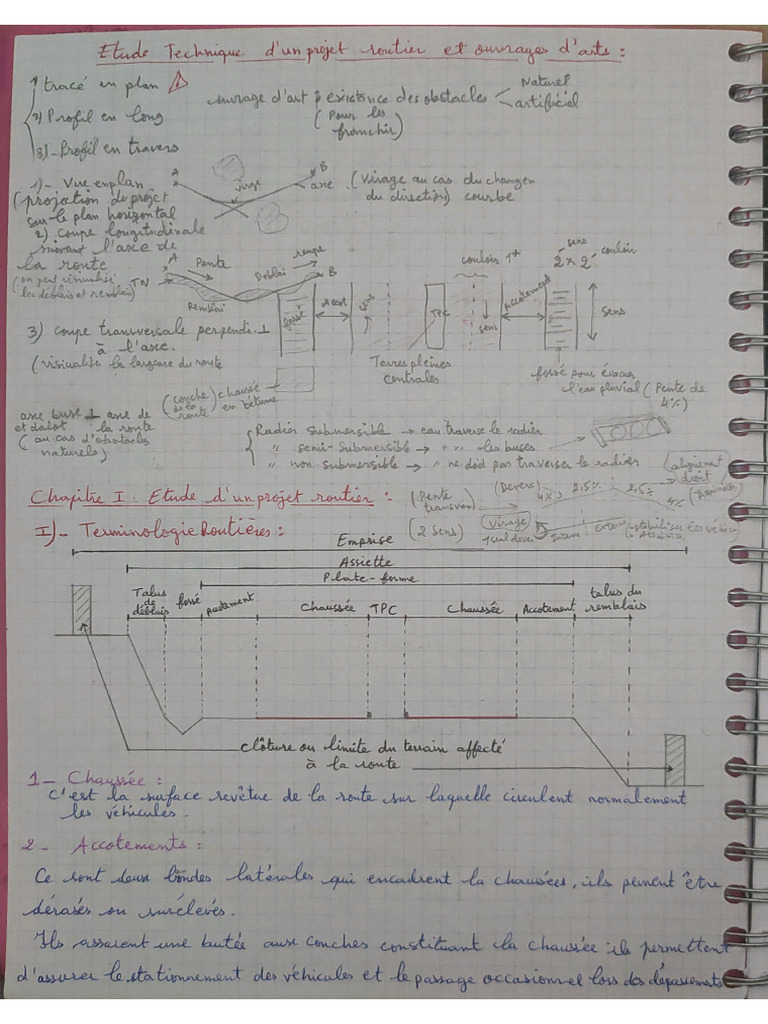 Etude Technique d'un projet routier et ouvrages d'arts :
1) tracé en plan
2) Profil en long
3)- Profil en travers
ouvrage d'art : existence des obstacles
Naturel
artificiel
(Pour les
franchir)
1)- Vue en plan
(projection du projet
sur le plan horizontal
A
virage
B
axe
(Virage au cas du changem
du direction) courbe
2) coupe longitudinale
suivant l'axe de
la route
(on peut visualisée
les déblais et remblais)
TN
A
Pente
Remblai
Deblai
rampe
B
fossé
Accot
sens
couloir 1+
TPC
sens
Accotement
sens
2 x 2
couloir
sens
3) coupe transversale perpendi. ⊥
à l'axe.
(visualise la largeur du route
Terres pleines
centrales
fossé pour évacuer
l'eau pluvial (Pente de
4%)
(couche
de la
route)
chaussée
en bétume
axe buse ⊥ axe de
et dalot la route
(au cas d'obstacles
naturels)
Radier submersible → eau traverse le radier
" semi-submersible → " " les buses
" non submersible → " ne doit pas traverser le radier
Chapitre I : Etude d'un projet routier :
(Pente
transver)
(Devers)
4%
2,5%
2,5%
4%
alignement
droit
I)- Terminologie Routières :
(2 sens)
Virage
1 seul dever
Interne
exter
Emprise
Assiette
Plate-forme
Talus
de
déblais
fossé
Accotement
Chaussée
TPC
Chaussée
Accotement
talus du
remblais
clôture ou limite du terrain affecté
à la route
1- Chaussée :
C'est la surface revêtue de la route sur laquelle circulent normalement
les véhicules.
2- Accotements :
Ce sont deux bandes latérales qui encadrent la chaussées, ils peuvent être
dérasés ou surélevés.
Ils assurent une butée aux couches constituant la chaussée ils permettent
d'assurer le stationnement des véhicules et le passage occasionnel lors des dépassements